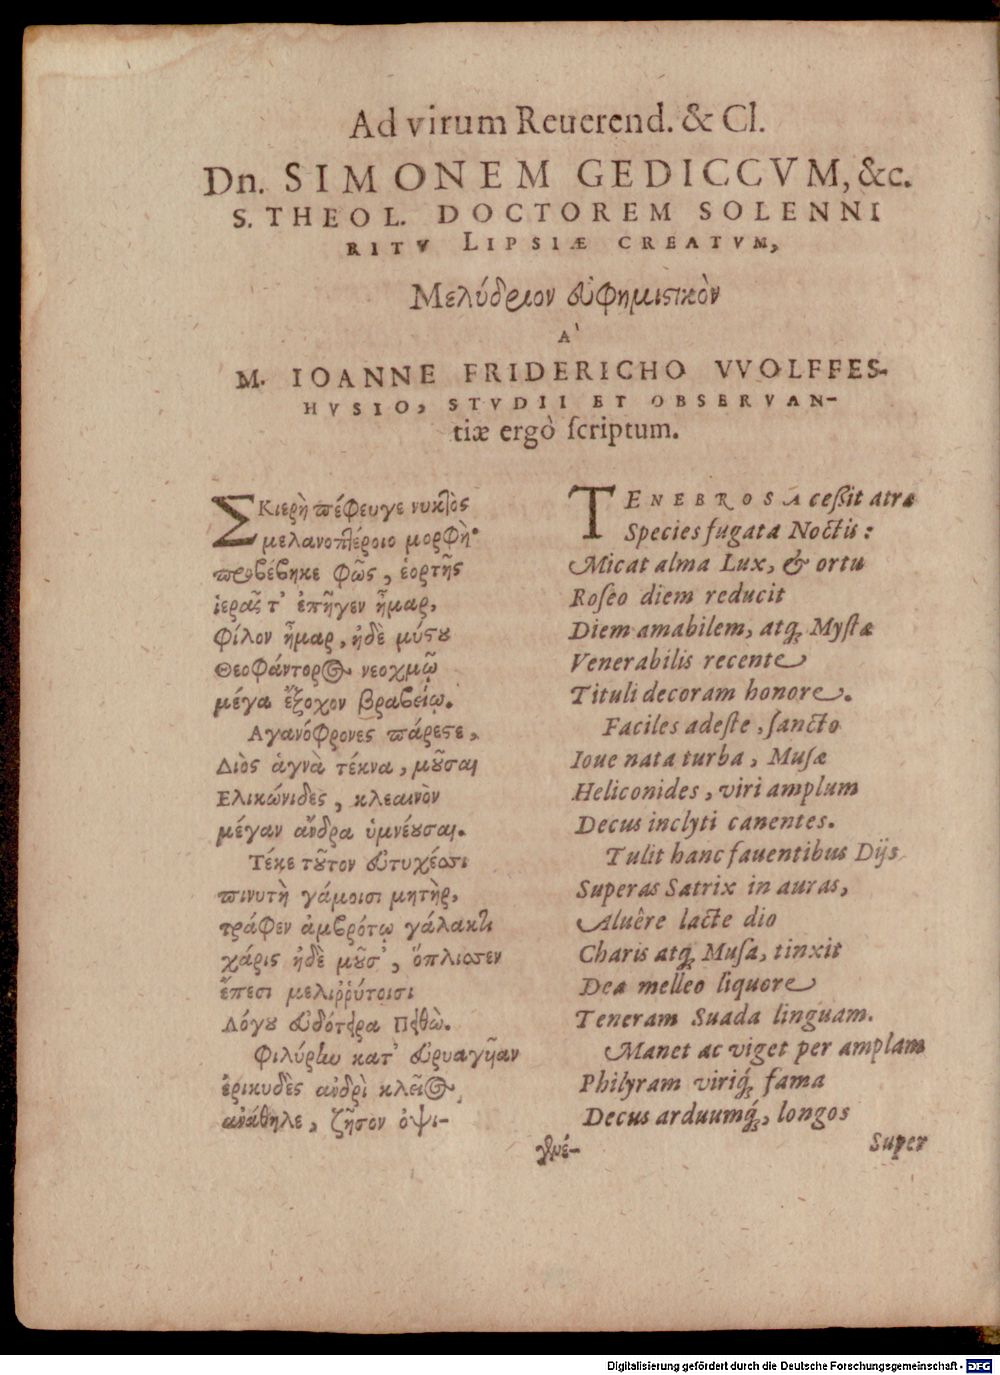 Ad virum Reuerend. & Cl.
Dn. SIMONEM GEDICCVM, &c.
S. THEOL. DOCTOREM SOLENNI
RITV LIPSIÆ CREATVM,
Μελύδριον εὐφημιστικὸν
A'
M. IOANNE FRIDERICHO VVOLFFES-
HVSIO, STVDII ET OBSERVAN-
tiæ ergò ſcriptum.
ΣΚιερὴ πέφευγε νυκτὸς
μελανοπτέροιο μορφὴ·
προβέβηκε φῶς, ἑορτῆς
ἱερᾶς τ' ἐπῆγεν ἦμαρ,
φίλον ἦμαρ, ἠδὲ μύστου
Θεοφάντορος νεοχμῷ
μέγα ἔξοχον βραβείῳ.
Αγανόφρονες πάρεστε,
Διὸς ἁγνὰ τέκνα, μοῦσαι
Ελικώνιδες, κλεαινὸν
μέγαν ἄνδρα ὑμνέουσαι.
Τέκε τοῦτον εὐτυχέεσσι
πινυτὴ γάμοισι μητὴρ,
τράφεν ἀμβρότῳ γάλακτι
χάρις ἠδὲ μοῦσ', ὅπλισσεν
ἔπεσι μελιῤῥύτοισι
Λόγου εὐδότειρα Πειθὼ.
Φιλύρην κατ' εὐρυαγῆαν
ἐρικυδὲς ἀνδρὶ κλεῖος
ἀνάθηλε, ζῆσον ὀψι-
γενέ-
TENEBROSA ceßit atræ
Species fugata Noctis:
Micat alma Lux, & ortu
Roſeo diem reducit
Diem amabilem, atq; Myſtæ
Venerabilis recente
Tituli decoram honore.
Faciles adeſte, ſancto
Ioue nata turba, Muſæ
Heliconides, viri amplum
Decus inclyti canentes.
Tulit hanc fauentibus Dijs
Superas Satrix in auras,
Aluêre lacte dio
Charis atq; Muſa, tinxit
Dea melleo liquore
Teneram Suada linguam.
Manet ac viget per amplam
Philyram viriq́; fama
Decus arduumq́;, longos
Super
Digitalisierung gefördert durch die Deutsche Forschungsgemeinschaft - DFG